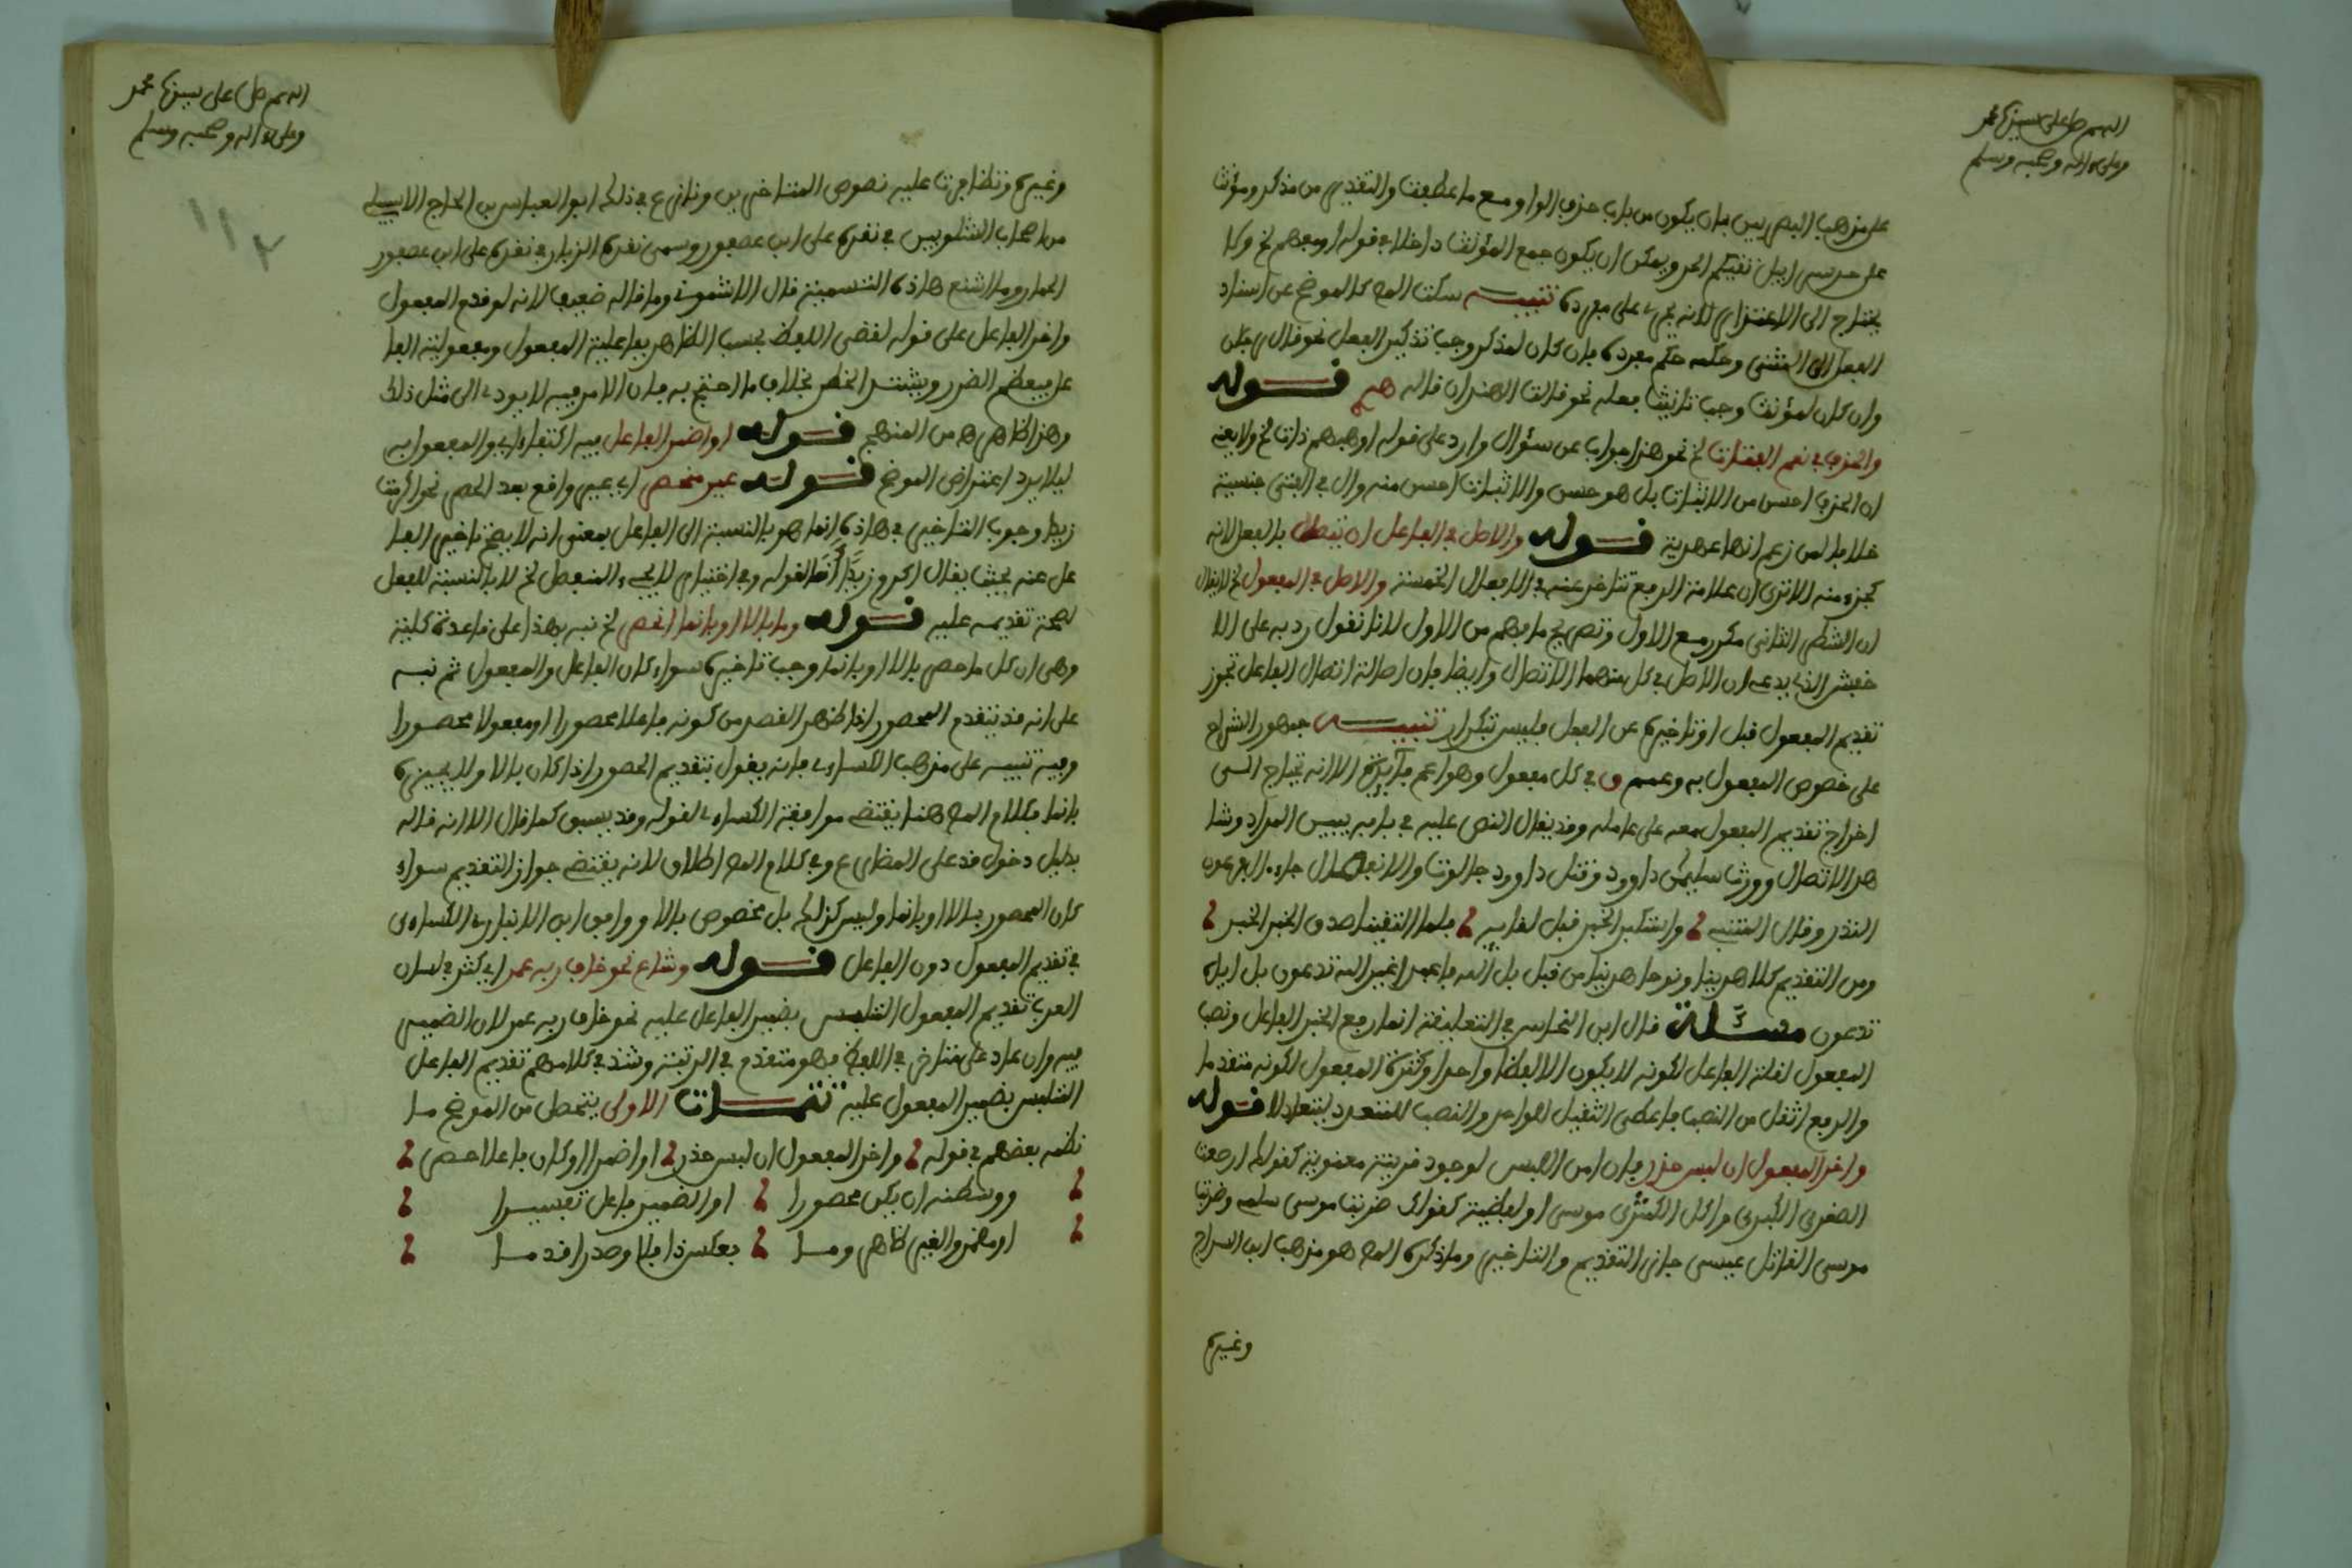 اللهم صل على سيدنا محمد
وعلى ءاله وصحبه وسلم
على مذهب البصريين بان يكون من باب حذف الواو مع ما عطفت والتقدير من مذكر ومؤنث
على حد سرابيل تقيكم الحر ويمكن ان يكون جمع المؤنث داخلا في قوله او مبهم الخ ولا
يحتاج الى الاعتذار لانه يجرى على مفرده تنبيه سكت المص كالموضح عن اسناد
الفعل الى المثنى وحكمه حكم مفرده فان كان لمذكر وجب تذكير الفعل نحو قال رجلان
وان كان لمؤنث وجب تانيث فعله نحو قالت الهندان قاله قوله
والحذف في نعم الفتاة الخ نحو هذا جواب عن سؤال وارد على قوله او مفهم ذات الخ ولا يعنى
ان الحذف احسن من الاثبات بل هو حسن والاثبات احسن منه وال في الفتى جنسية
خلافا لمن زعم انها عهدية قوله والاصل في الفاعل ان يتصلا بالفعل لانه
كجزء منه الا ترى ان علامة الرفع تتاخر عنه في الافعال الخمسة والاصل في المفعول الخ لا يقال
ان الشطر الثاني مكرر مع الاول وتصريح ما فهم من الاول لانا نقول رد به على الا
خفش الذي يدعى ان الاصل في كل منهما الاتصال وايضا فان اصالة اتصال الفاعل تجوز
تقديم المفعول قبل او تاخيره عن الفعل فليس تكرار تنبيه جمهور الشراح
على خصوص المفعول به وعمم ق في كل مفعول وهو اعم فائدة الا انه يحتاج الى
اخراج تقديم المفعول معه على عامله وقد يقال النص عليه في بابه يبين المراد وشا
هد الاتصال وورث سليمن داوود وقتل داوود جالوت والانفصال جاء ال فرعون
النذر وقال المتنبى واستكبر الخبر قبل لقايه فلما التقينا صدق الخبر الخبر
ومن التقديم كلا هدينا ونوحا هدينا من قبل بل الله فاعبد اغير الله تدعون بل اياه
تدعون مسئلة قال ابن النحاس في التعليقة انما رفع الخبر الفاعل ونصب
المفعول لقلة الفاعل لكونه لا يكون الا لفظا واحدا وكثرة المفعول لكونه متعددا
والرفع اثقل من النصب فاعطى الثقيل للواحد والنصب للمتعدد ليتعادلا قوله
واخر المفعول ان لبس حذر فان امن اللبس لوجود قرينة معنوية كقولك ارضعت
الصغرى الكبرى واكل الكمثرى موسى او لفظية كقولك ضربت موسى سلمى وضرب
موسى الفاتل عيسى جاز التقديم والتاخير وما ذكره المص هو مذهب ابن السراج
وغيره
اللهم صل على سيدنا محمد
وعلى ءاله وصحبه وسلم
١١٢
وغيره وتظافرت عليه نصوص المتاخرين ونازع في ذلك ابو العباس بن الحاج الاشبيلى
من اصحاب الشلوبين في نقده على ابن عصفور وسمى نقده الزيار في نقده على ابن عصفور
الحمار وما اشنع هاذه التسمية قال الاشموني وما قاله ضعيف لانه لو قدم المفعول
واخر الفاعل على قوله لقضى اللفظ بحسب الظاهر بفاعلية المفعول ومفعولية الفا
عل فيعظم الضرر ويشتد الخطر بخلاف ما احتج به فان الامر فيه لا يودى الى مثل ذلك
وهذا ظاهر من المنهج قوله او اضمر الفاعل فيه اكتفاء اى والمفعول به
ليلا يرد اعتراض الموضح قوله غير منحصر اى غير واقع بعد الحصر نحو اكرمت
زيدا وجوب التاخير في هاذه انما هو بالنسبة الى الفاعل بمعنى انه لا يصح تاخير الفا
عل عنه بحيث يقال اكرم زيدا انا لقوله وفي اختيار لا يجىء المنفصل الخ لا بالنسبة للفعل
لصحة تقديمه عليه قوله وما بالا او بانما انحصر الخ نبه بهذا على قاعدة كلية
وهى ان كل ما حصر بالا او بانما وجب تاخيره سواء كان الفاعل والمفعول ثم نبه
على انه قد يتقدم المحصور اذا ظهر القصر من كونه فاعلا محصورا او مفعولا محصورا
وفيه تنبيه على مذهب الكساءى فانه يقول بتقديم المحصور اذا كان بالا ولا يجيزه
بانما فكلام المص هنا يقتضى موافقة الكساءى لقوله وقد يسبق كما قال الا انه قاله
بدليل دخول قد على المضارع وفي كلام المص اطلاق لانه يقتضى جواز التقديم سواء
كان المحصور بالا او بانما وليس كذلك بل مخصوص بالا ووافق ابن الانبارى الكساءى
في تقديم المفعول دون الفاعل قوله وشاع نحو خاف ربه عمر اى كثر في لسان
العرب تقديم المفعول الملتبس بضمير الفاعل عليه نحو خاف ربه عمر لان الضمير
فيه وان عاد على متاخر في اللفظ فهو متقدم في الرتبة وشذ في كلامهم تقديم الفاعل
الملتبس بضمير المفعول عليه تتمات الاولى يتحصل من الموضح ما
نظمه بعضهم في قوله واخر المفعول ان لبس حذر او اضمر او كان فاعلا حصر
ووسطنه ان يكن محصورا او الضمير فاعل تفسيرا
او مضمر والغير ظاهر وما بعكس ذا فا وصدرا قدما